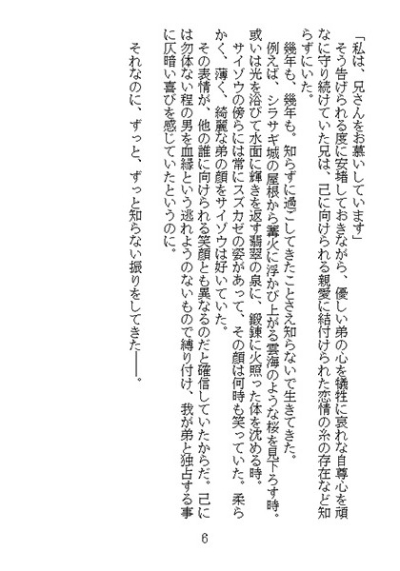 「私は、兄さんをお慕いしています」
　そう告げられる度に安堵しておきながら、優しい弟の心を犠牲に哀れな自尊心を頑
なに守り続けていた兄は、己に向けられる親愛に結付けられた恋情の糸の存在など知
らずにいた。
　幾年も、幾年も。知らずに過ごしてきたことさえ知らないで生きてきた。
　例えば、シラサギ城の屋根から篝火に浮かび上がる雲海のような桜を見下ろす時。
或いは光を浴びて水面に輝きを返す翡翠の泉に、鍛錬に火照った体を沈める時。
　サイゾウの傍らには常にスズカゼの姿があって、その顔は何時も笑っていた。柔ら
かく、薄く、綺麗な弟の顔をサイゾウは好いていた。
　その表情が、他の誰に向けられる笑顔とも異なるのだと確信していたからだ。己に
は勿体ない程の男を血縁という逃れようのないもので縛り付け、我が弟と独占する事
に仄暗い喜びを感じていたというのに。
　それなのに、ずっと、ずっと知らない振りをしてきた――。
6